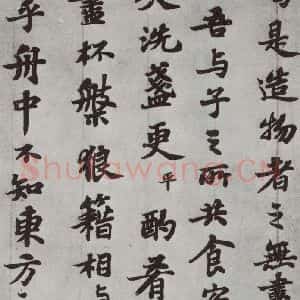 是造物者之無盡
吾与子之所共食
洗盞更平酌肴
盡杯槃狼籍相与
乎舟中不知東方
Shufawang.cn